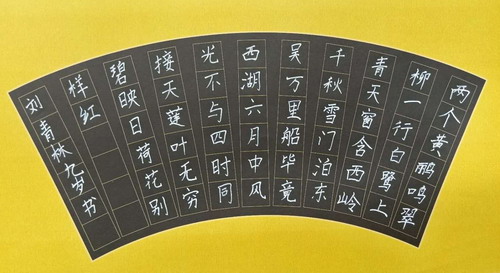 两个黄鹂鸣翠
柳一行白鹭上
青天窗含西岭
千秋雪门泊东
吴万里船毕竟
西湖六月中风
光不与四时同
接天莲叶无穷
碧映日荷花别
样红
刘青林九岁书